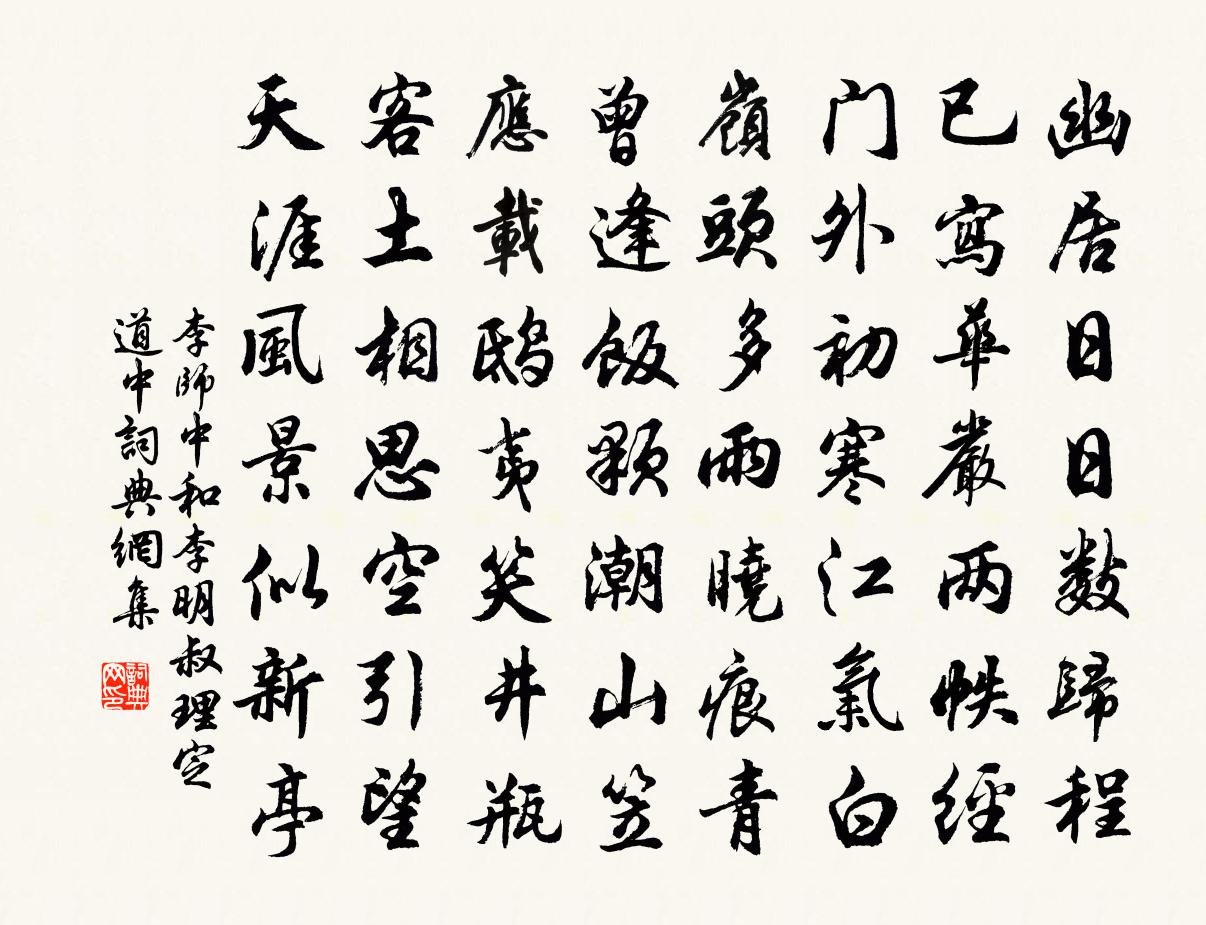 幽居日日数歸程
已寫華嚴两帙經
门外初寒江氣白
嶺頭多雨曉痕青
曾逢飯顆潮山笠
應載鴟夷笑井瓶
客土相思空引望
天涯風景似新亭
李師中和李明叔理定
道中詞典網集
詞典网印